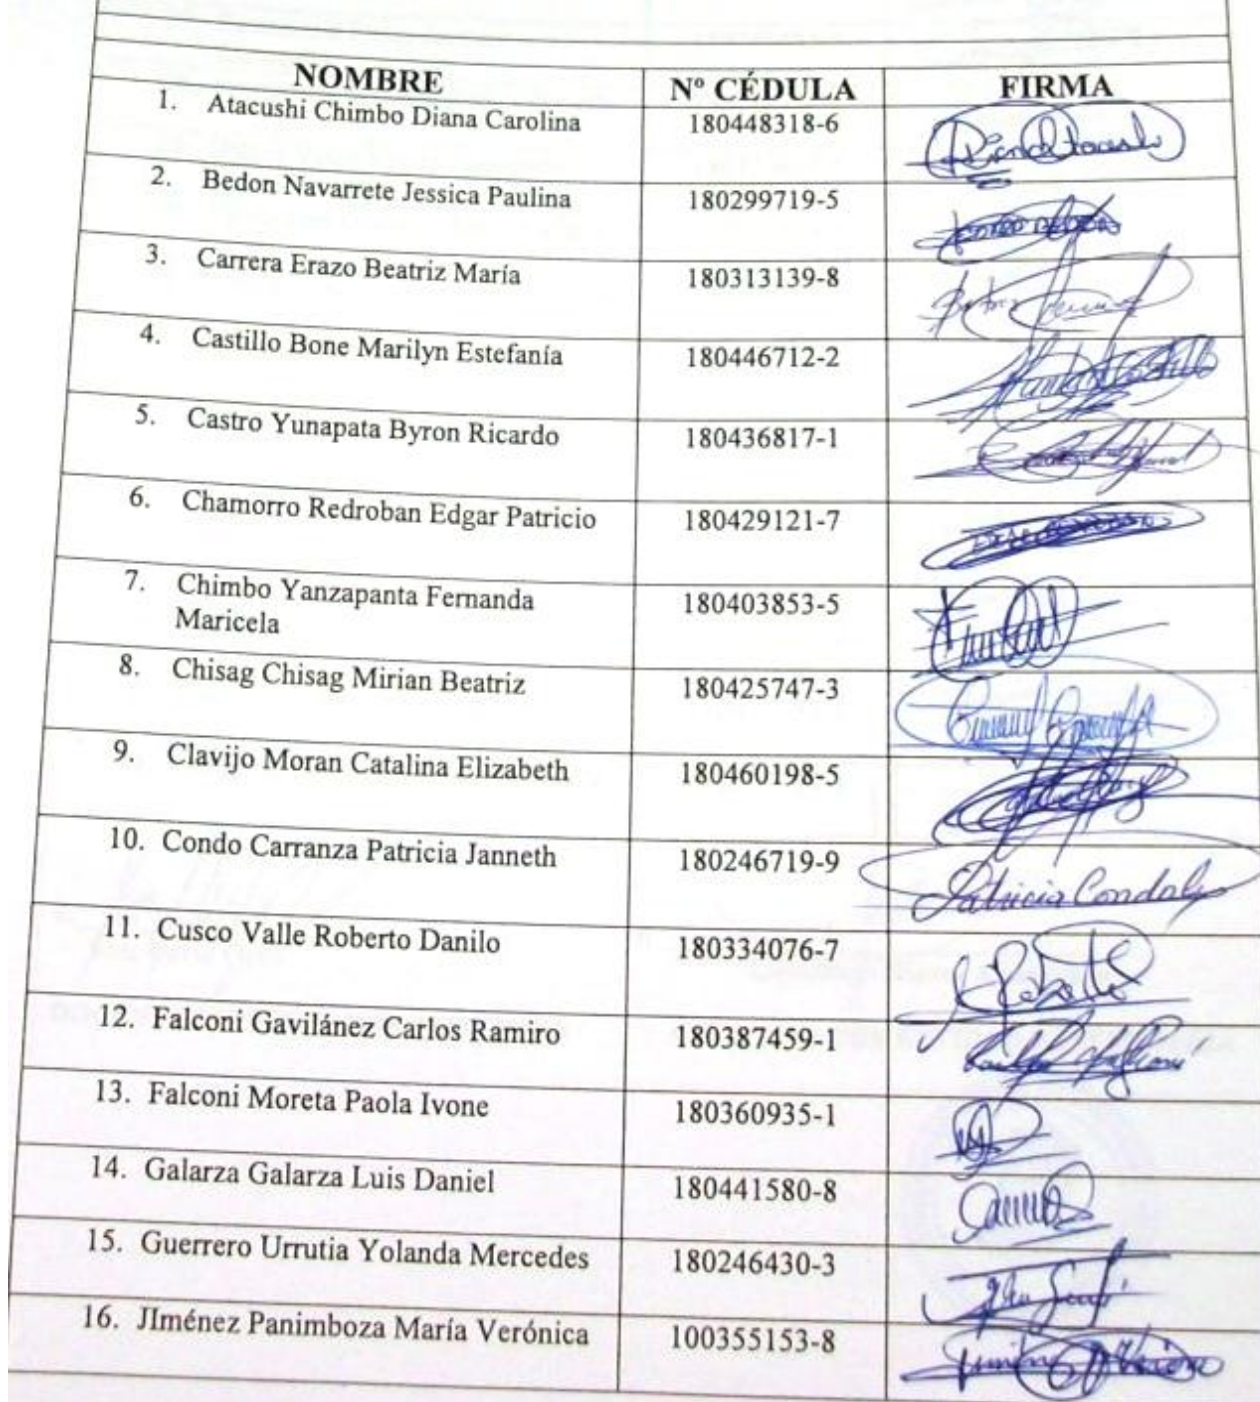 NOMBRE Nº CÉDULA FIRMA
1. Atacushi Chimbo Diana Carolina 180448318-6
2. Bedon Navarrete Jessica Paulina 180299719-5
3. Carrera Erazo Beatriz María 180313139-8
4. Castillo Bone Marilyn Estefanía 180446712-2
5. Castro Yunapata Byron Ricardo 180436817-1
6. Chamorro Redroban Edgar Patricio 180429121-7
7. Chimbo Yanzapanta Fernanda 180403853-5
Maricela
8. Chisag Chisag Mirian Beatriz 180425747-3
9. Clavijo Moran Catalina Elizabeth 180460198-5
10. Condo Carranza Patricia Janneth 180246719-9 Patricia
11. Cusco Valle Roberto Danilo 180334076-7
12. Falconi Gavilánez Carlos Ramiro 180387459-1
13. Falconi Moreta Paola Ivone 180360935-1
14. Galarza Galarza Luis Daniel 180441580-8
15. Guerrero Urrutia Yolanda Mercedes 180246430-3
16. JIménez Panimboza María Verónica 100355153-8